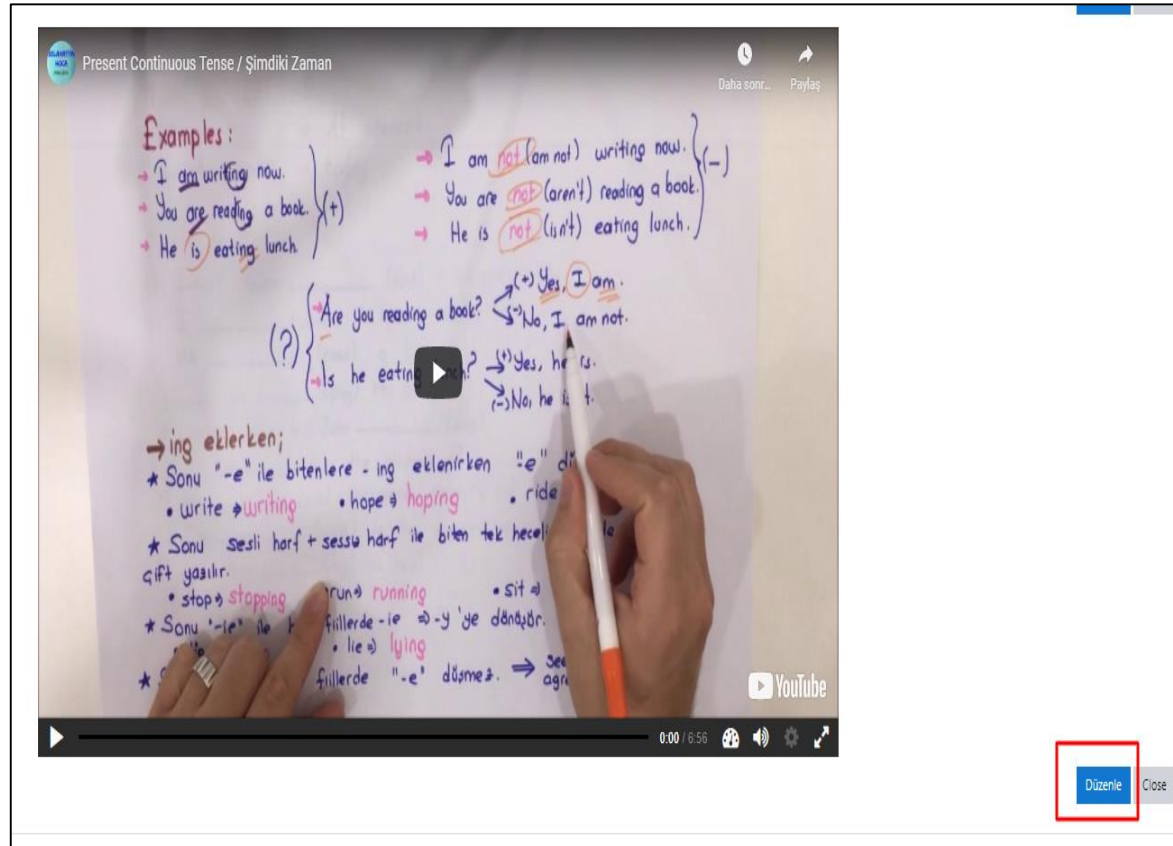 Present Continuous Tense / Şimdiki Zaman
Daha sonr... Paylaş
Examples:
→ I am writing now.
→ You are reading a book. (+)
→ He is eating lunch.
→ I am not (am not) writing now.
→ You are not (aren't) reading a book. (-)
→ He is not (isn't) eating lunch.
(?) → Are you reading a book? (+) Yes, I am.
(-) No, I am not.
→ Is he eating? (+) Yes, he is.
(-) No, he
→ ing eklerken;
★ Sonu "-e" ile bitenlere - ing eklenirken "-e"
• write → writing • hope → hoping • ride
★ Sonu sesli harf + sessiz harf ile biten tek heceli
çift yazılır.
• stop → stopping run → running • sit →
★ Sonu "-ie" ile fiillerde -ie → -y 'ye dönüşür.
• lie → lying
★ fiillerde "-e" düşmez. →
YouTube
0:00 / 6:56
Düzenle Close